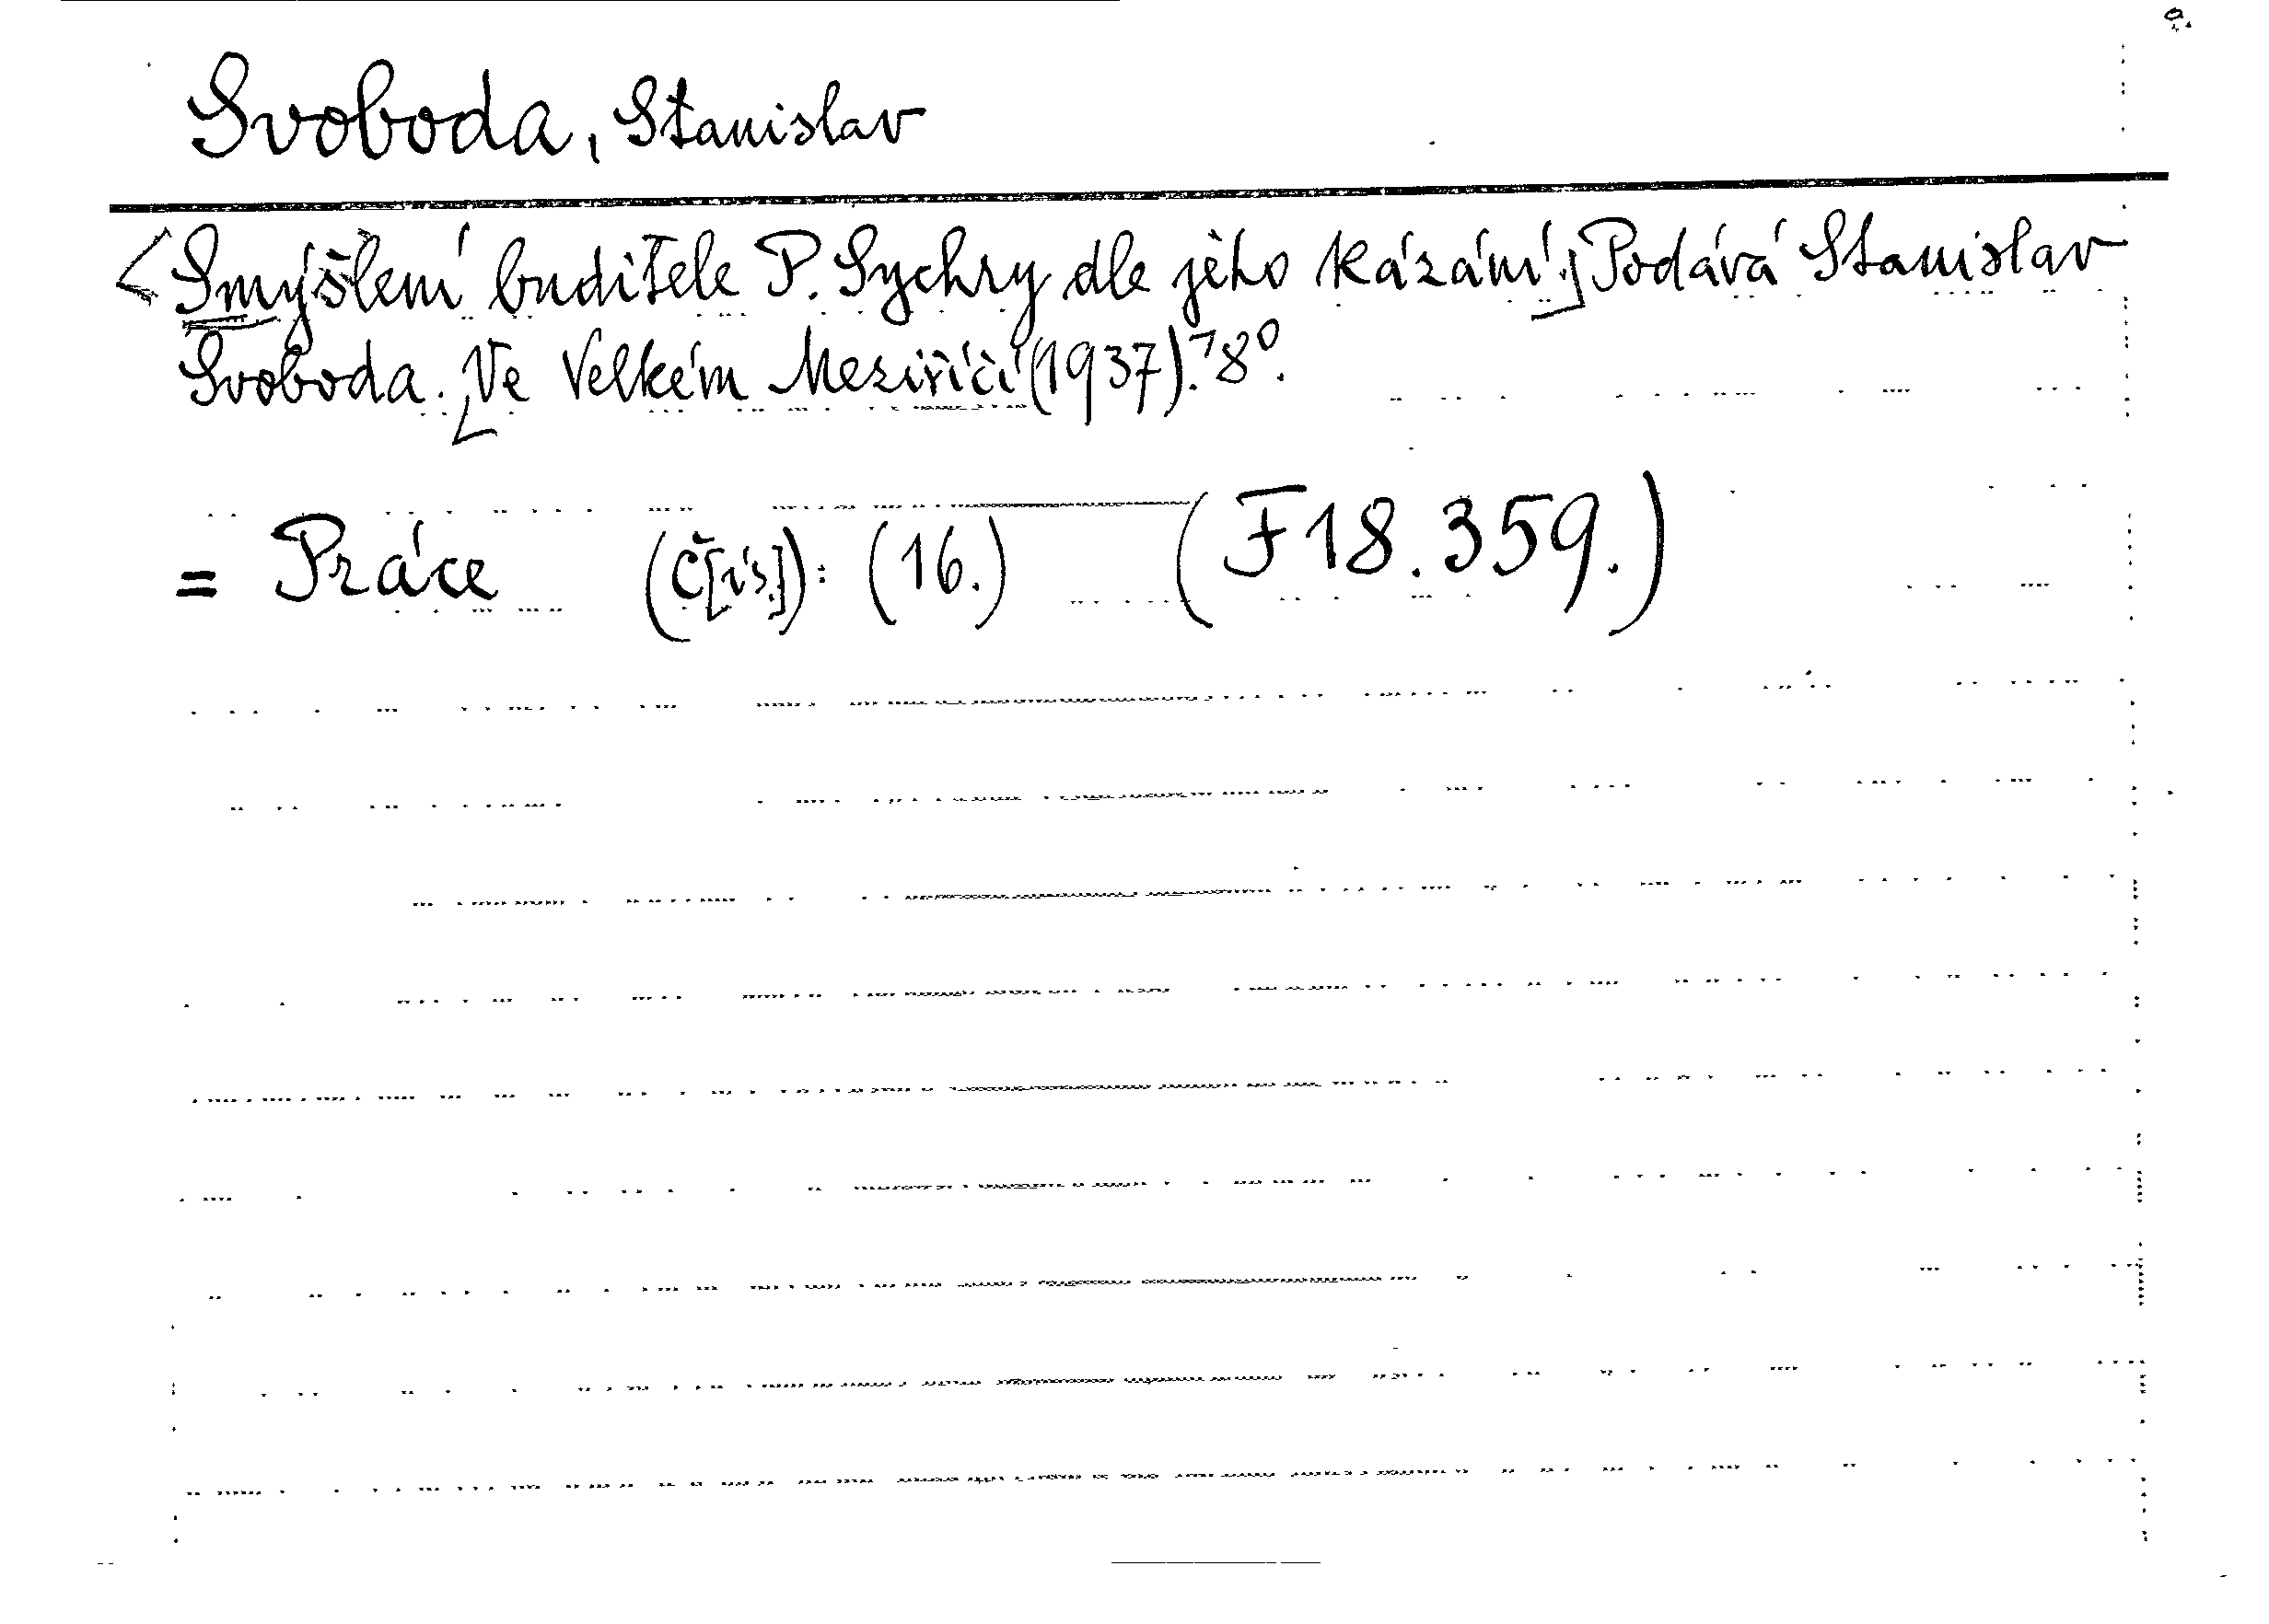 Svoboda, Stanislav
<Smýšlení buditele P. Sychry dle jeho kázání.] Podává Stanislav
Svoboda. [Ve Velkém Meziříčí (1937).] 8°.
= Práce (Č[ís.]): (16.) (F 18.359.)